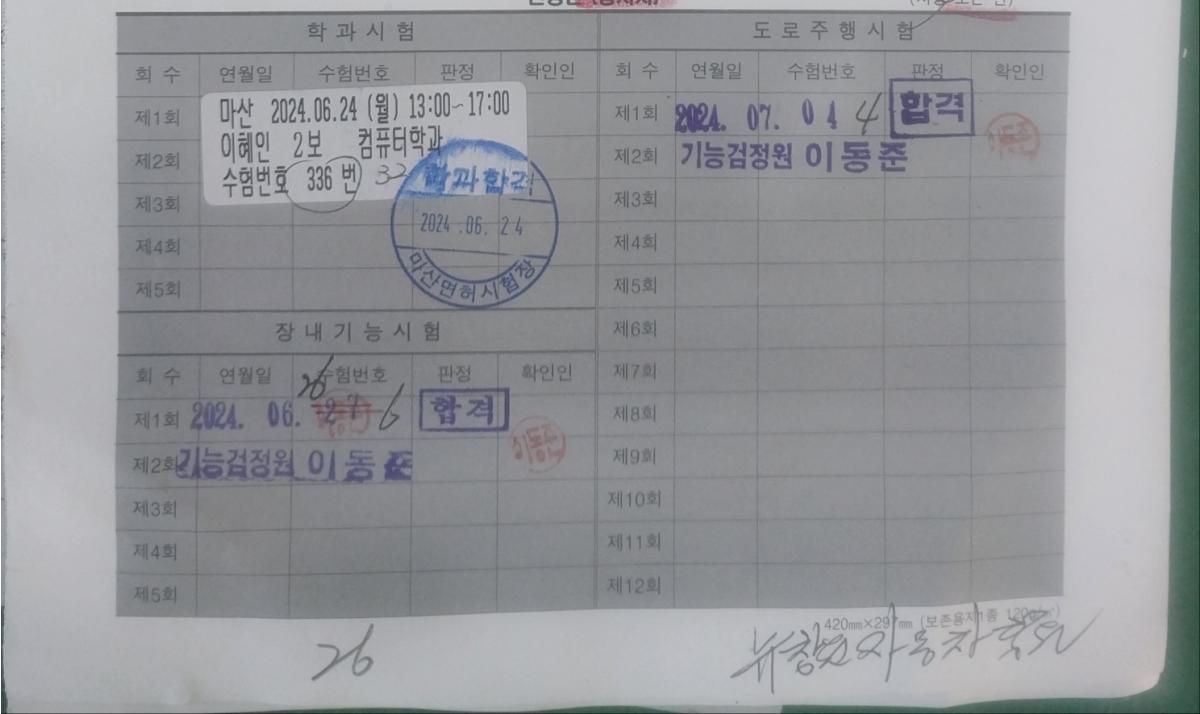 학과시험
회 수 연월일 수험번호 판정 확인인
제1회
마산 2024.06.24 (월) 13:00~17:00
이혜인 2보 컴퓨터학과
수험번호 336 번 32
제2회
제3회
제4회
제5회
학과합격
2024.06.24
마산면허시험장
장내기능시험
회 수 연월일 수험번호 판정 확인인
26
제1회 2024. 06. 27 6 합격
이동준
제2회 기능검정원 이동준
제3회
제4회
제5회
도로주행시험
회 수 연월일 수험번호 판정 확인인
제1회 2024. 07. 04 4 합격
이동준
제2회 기능검정원 이동준
제3회
제4회
제5회
제6회
제7회
제8회
제9회
제10회
제11회
제12회
420㎜×297㎜ (보존용지1종 120g/㎡)
26
뉴창원자동차학원